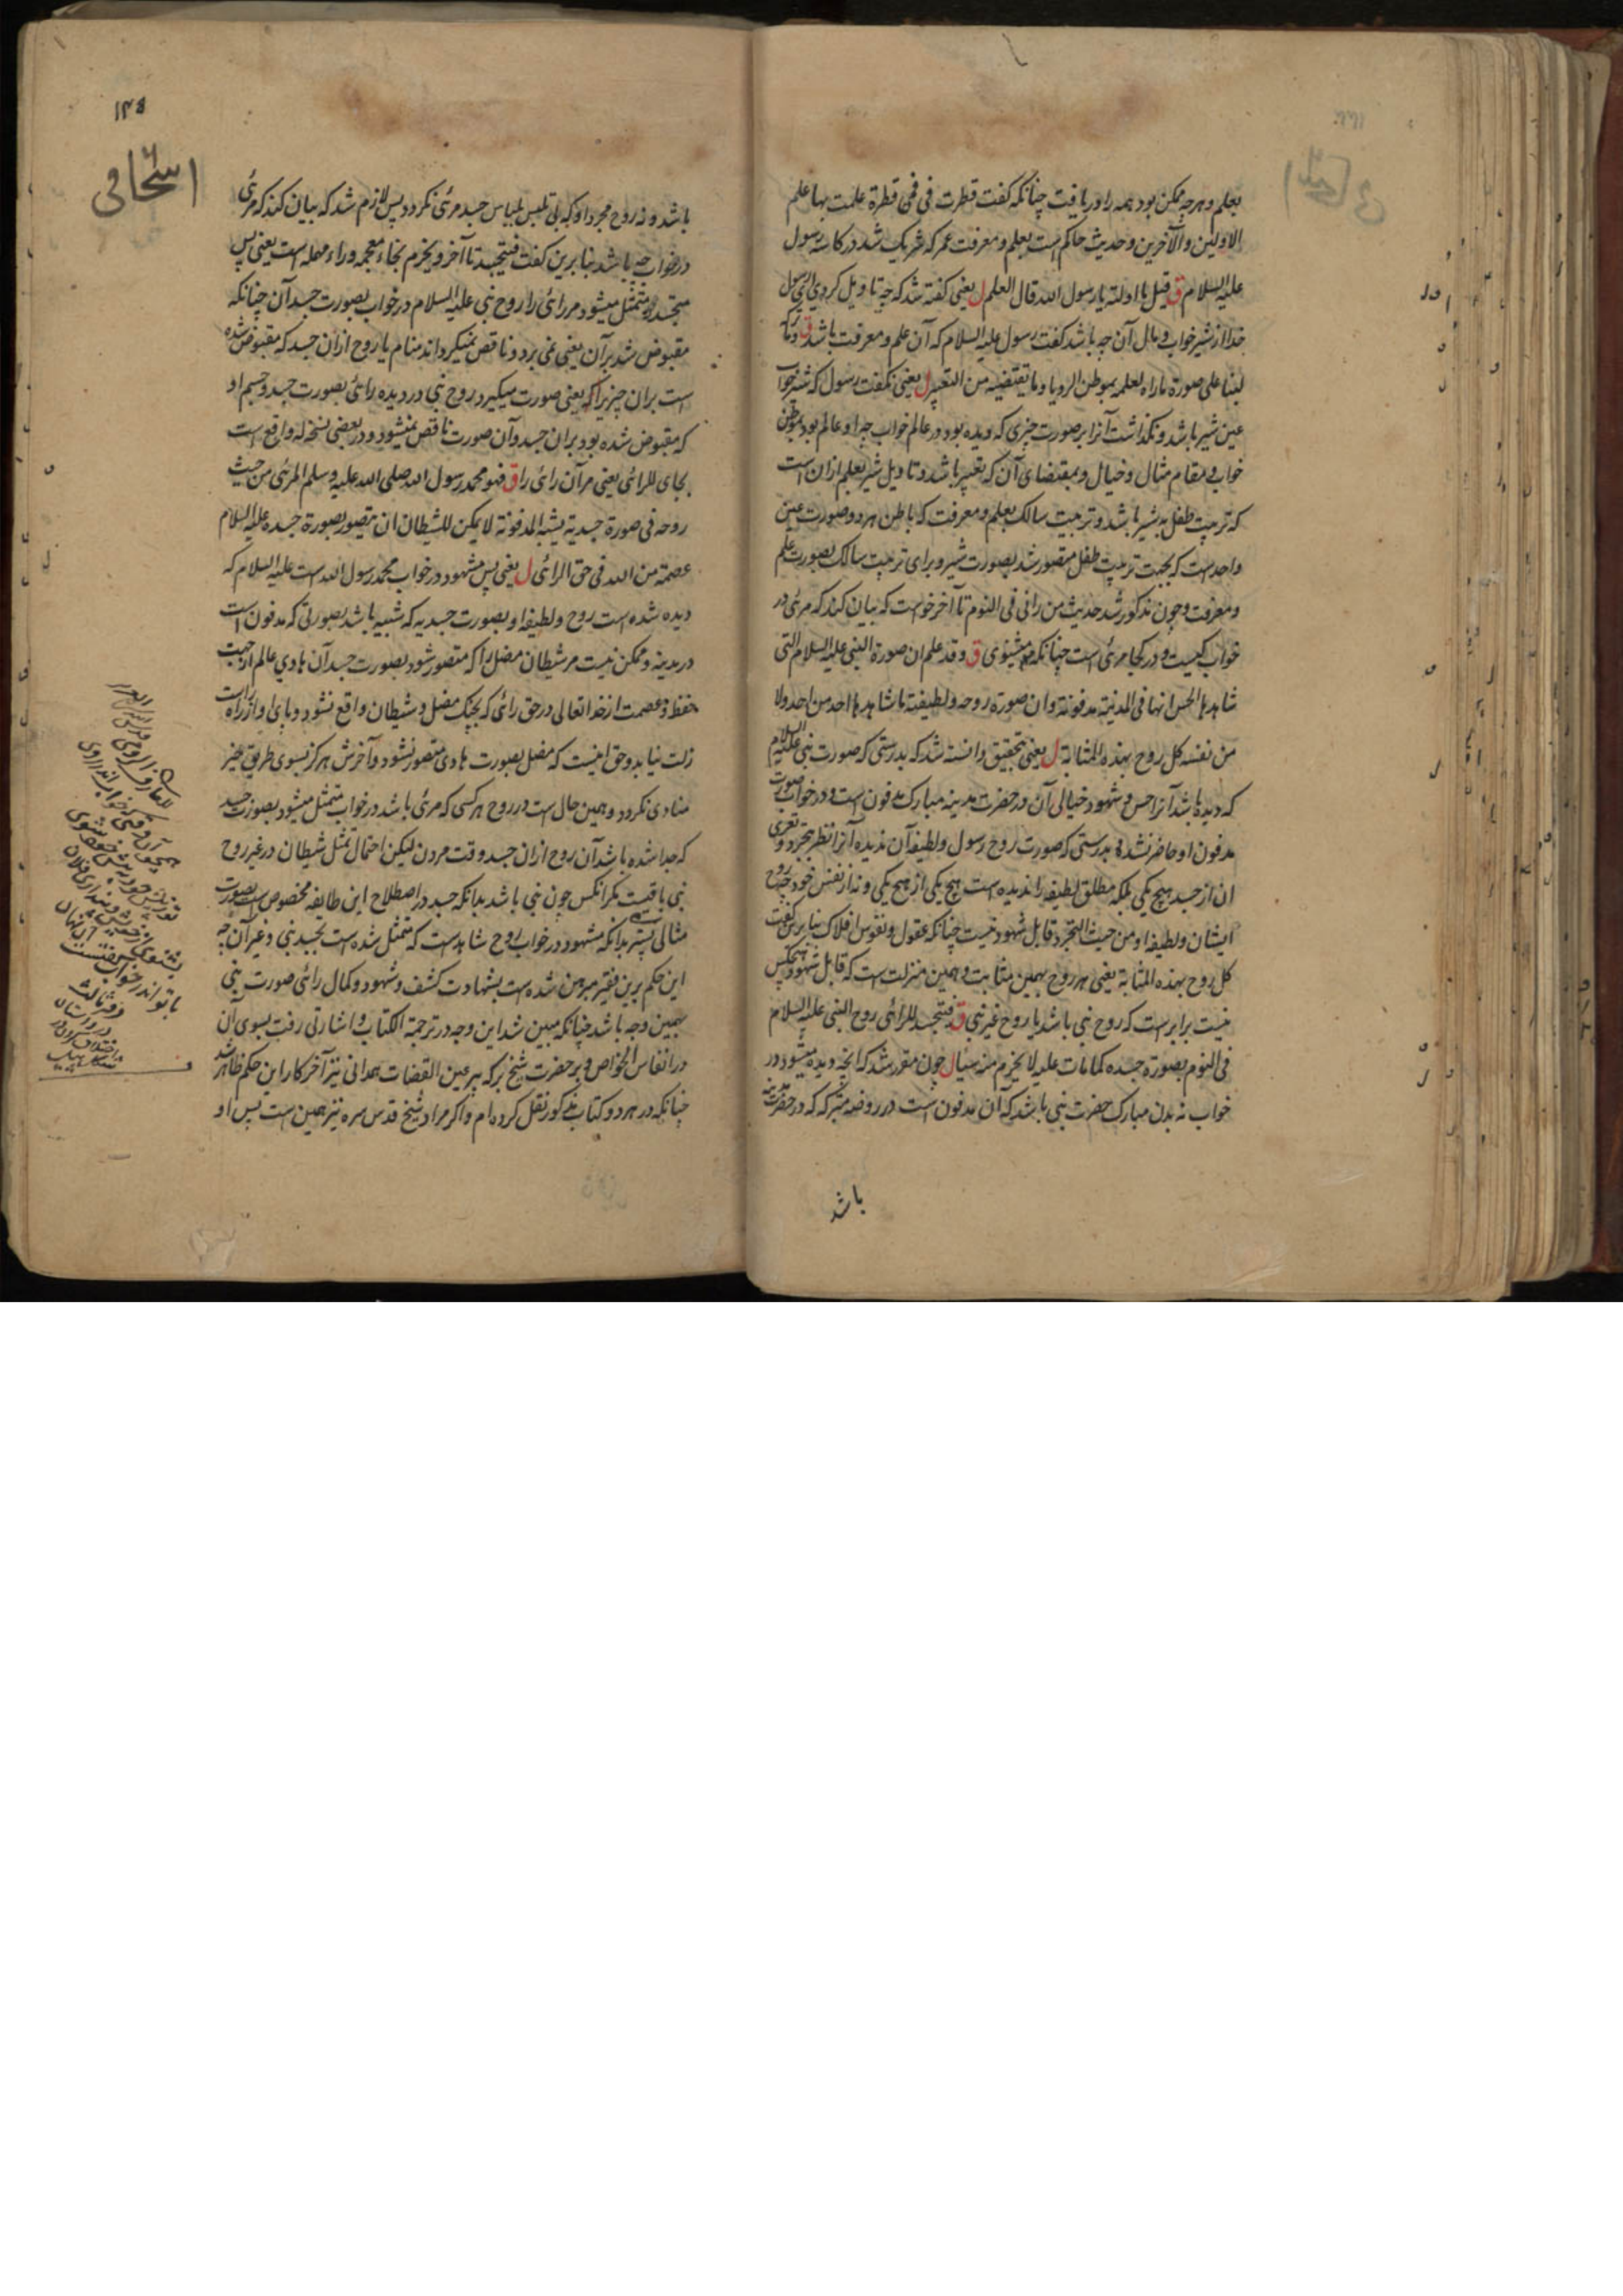 بعلم و هرچه ممکن بود همه را دریافت چنانکه گفت قطرت فی فمی قطرة علمت بها علم
الاولین والآخرین و حدیث حاکم است بعلم و معرفت عمر که شریک شد در کاسه رسول
علیه السلام ق قیل ما اولته یا رسول الله قال العلم ل یعنی گفته شد که چه تاویل کردی ای رسول
خدا از شیر خواب و مآل آن چه باشد گفت رسول علیه السلام که آن علم و معرفت باشد ق وما ترکه
لبنا علی صورة ما راه لعلمه بموطن الرویا وما یقتضیه من التعبیر ل یعنی نگفت رسول که شیر خواب
عین شیر باشد و نگذاشت آنرا بر صورت چیزی که دیده بود در عالم خواب چه او عالم بود بموطن
خواب و مقام مثال و خیال و بمقتضای آن که تعبیر باشد و تاویل شیر بعلم ازان است
که تربیت طفل به شیر باشد و تربیت سالک بعلم و معرفت که باطن هر دو صورت عین
واحد است که بجهت تربیت طفل متصور شد بصورت شیر و برای تربیت سالک بصورت علم
و معرفت و چون مذکور شد حدیث من رانی فی النوم تا آخر خواست که بیان کند که مرئی در
خواب کیست و در کجا مرئی است چنانکه میشنوی ق وقد علم ان صورة النبی علیه السلام التی
شاهدها الحس انها فی المدینة مدفونة وان صورة روحه ولطیفته ما شاهدها احد من احد ولا
من نفسه کل روح بهذه المثابة ل یعنی بتحقیق دانسته شد که بدرستی که صورت نبی علیه السلام
که دیده باشد آنرا حس و شهود خیالی آن در حضرت مدینه مبارک مدفون است و در خواب صورت
مدفون او حاضر نشد و بدرستی که صورت روح رسول و لطیفه آن ندیده آنرا نظر بتجرد و تعری
ان از جسد هیچ یکی بلکه مطلق لطیفه را ندیده است هیچ یکی از هیچ یکی و نه از نفس خود چه روح
ایشان و لطیفه او من حیث التجرد قابل شهود نیست چنانکه عقول و نفوس افلاک بنابرین گفت
کل روح بهذه المثابة یعنی هر روح بهمین مثابت و بهمین منزلت است که قابل شهود هیچکس
نیست برابر است که روح نبی باشد یا روح غیر نبی ق فتجسد للرائی روح النبی علیه السلام
فی النوم بصورة جسده کما مات علیه لا یخرم منه شیأ ل چون مقرر شد که آنچه دیده میشود در
خواب نه بدن مبارک حضرت نبی باشد که آن مدفون است در روضه متبرکه که در حضرت مدینه
باشد
۱۴۵
اسحاقی
باشد و نه روح مجرد او که بی تلبس بلباس جسد مرئی نگردد پس لازم شد که بیان کند که مرئی
در خواب چه باشد بنابرین گفت فیتجسد تا آخر و یخرم بخاء معجمه و راء مهمله است یعنی پس
متجسد و متمثل میشود مر رائی را روح نبی علیه السلام در خواب بصورت جسد آن چنانکه
مقبوض شد بر آن یعنی نمی برد و ناقص نمیگرداند منام یا روح ازان جسد که مقبوض شده
است بران چیزیرا که یعنی صورت میگیرد روح نبی در دیده رائی بصورت جسد و جسم او
که مقبوض شده بود بران جسد و آن صورت ناقص نمیشود و در بعضی نسخ له واقع است
بجای للرائی یعنی مر آن رائی را ق فهو محمد رسول الله صلی الله علیه وسلم المرئی من حیث
روحه فی صورة جسدیة یشبه المدفونة لا یمکن للشیطان ان یتصور بصورة جسده علیه السلام
عصمة من الله فی حق الرائی ل یعنی پس مشهود در خواب محمد رسول الله است علیه السلام که
دیده شده است روح و لطیفه او بصورت جسدیه که شبیه باشد بصورتی که مدفون است
در مدینه و ممکن نیست مر شیطان مضل را که متصور شود بصورت جسد آن هادی عالم از جهت
حفظ و عصمت از خداتعالی در حق رائی که بچنگ مضل و شیطان واقع نشود و پای او از راه راست
زلت نیابد و حق اینست که مضل بصورت هادی متصور نشود و آخرش هرگز بسوی طریق خیر
منادی نگردد و همین حال است در روح هر کسی که مرئی باشد در خواب متمثل میشود بصورت جسد
که جدا شده باشد آن روح ازان جسد وقت مردن لیکن احتمال تمثل شیطان در غیر روح
نبی باقیست مگر آنکس چون نبی باشد بدانکه جسد در اصطلاح این طایفه مخصوص است بصورت
مثالی پس بدانکه مشهود در خواب روح شاهد است که متمثل شده است بجسد نبی و غیر آن چه
این حکم برین فقیر مبرهن شده است بشهادت کشف و شهود و کمال رائی صورت نبی
بهمین وجه باشد چنانکه مبین شد این وجه در ترجمة الکتاب و اشارتی رفت بسوی آن
در انفاس الخواص و بر حضرت شیخ بزرگ پیر عین القضات همدانی نیز آخر کار این حکم ظاهر شد
چنانکه در هر دو کتاب مذکور نقل کرده ام و اگر مراد شیخ قدس سره نیز همین است پس او